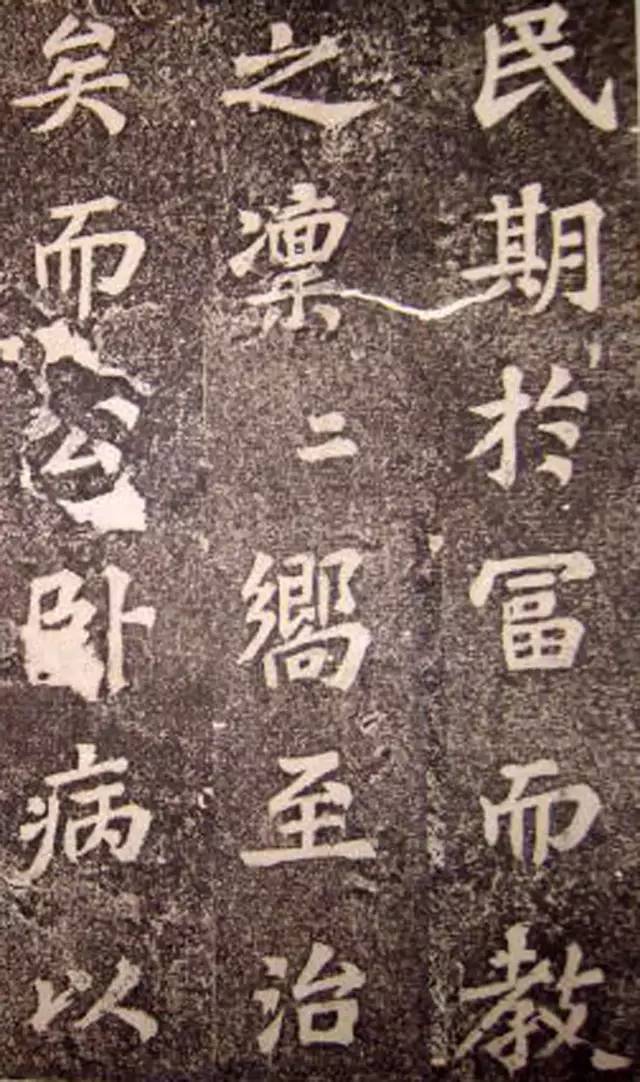 民期於冨而教
之凜二嚮至治
矣而公卧病以